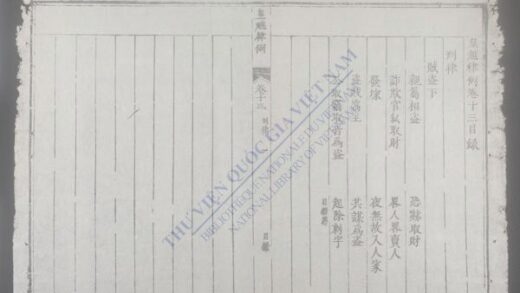 皇越律例卷十三目錄
刑律
賊盜下
親屬相盜 恐嚇取財
詐欺官私取財 畧人畧賣人
發塚 夜無故入人家
盜賊窩主 共謀為盜
公取竊取皆為盜 起除刺字
目錄畢
皇越律例 卷十三 刑律 目錄
THƯ VIỆN QUỐC GIA VIỆT NAM
BIBLIOTHÈQUE NATIONALE DU VIETNAM
NATIONAL LIBRARY OF VIETNAM